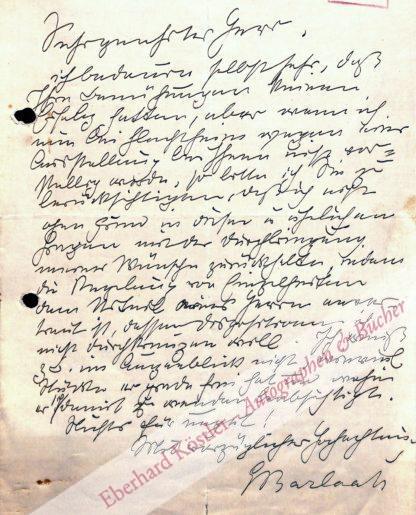 Sehr geehrter Herr,
ich bedauere selbst sehr, daß
Ihre Bemühungen keinen
Erfolg hatten, aber wenn ich
nun bei Flechtheim wegen einer
Ausstellung bei Ihnen nicht vor=
stellig werde, so bitte ich Sie zu
berücksichtigen, daß ich nicht
ohne Grund in dieser u ähnlichen
Fragen mit der Durchbringung
meiner Wünsche zurückhalte, indem
die Regelung von Einzelheiten
dem Urteil eines Herren anver
traut ist, dessen Dispositionen ich
nicht durchkreuzen will. Ich weiß
z. im Augenblick nicht, wieviel
Stücke er grade frei hat u wohin
er damit zu wandern beabsichtigt.
Nichts für ungut!
Mit vorzüglicher Hochachtung
EBarlach
Eberhard Köstler - Autographen & Bücher